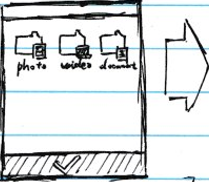 photo video document